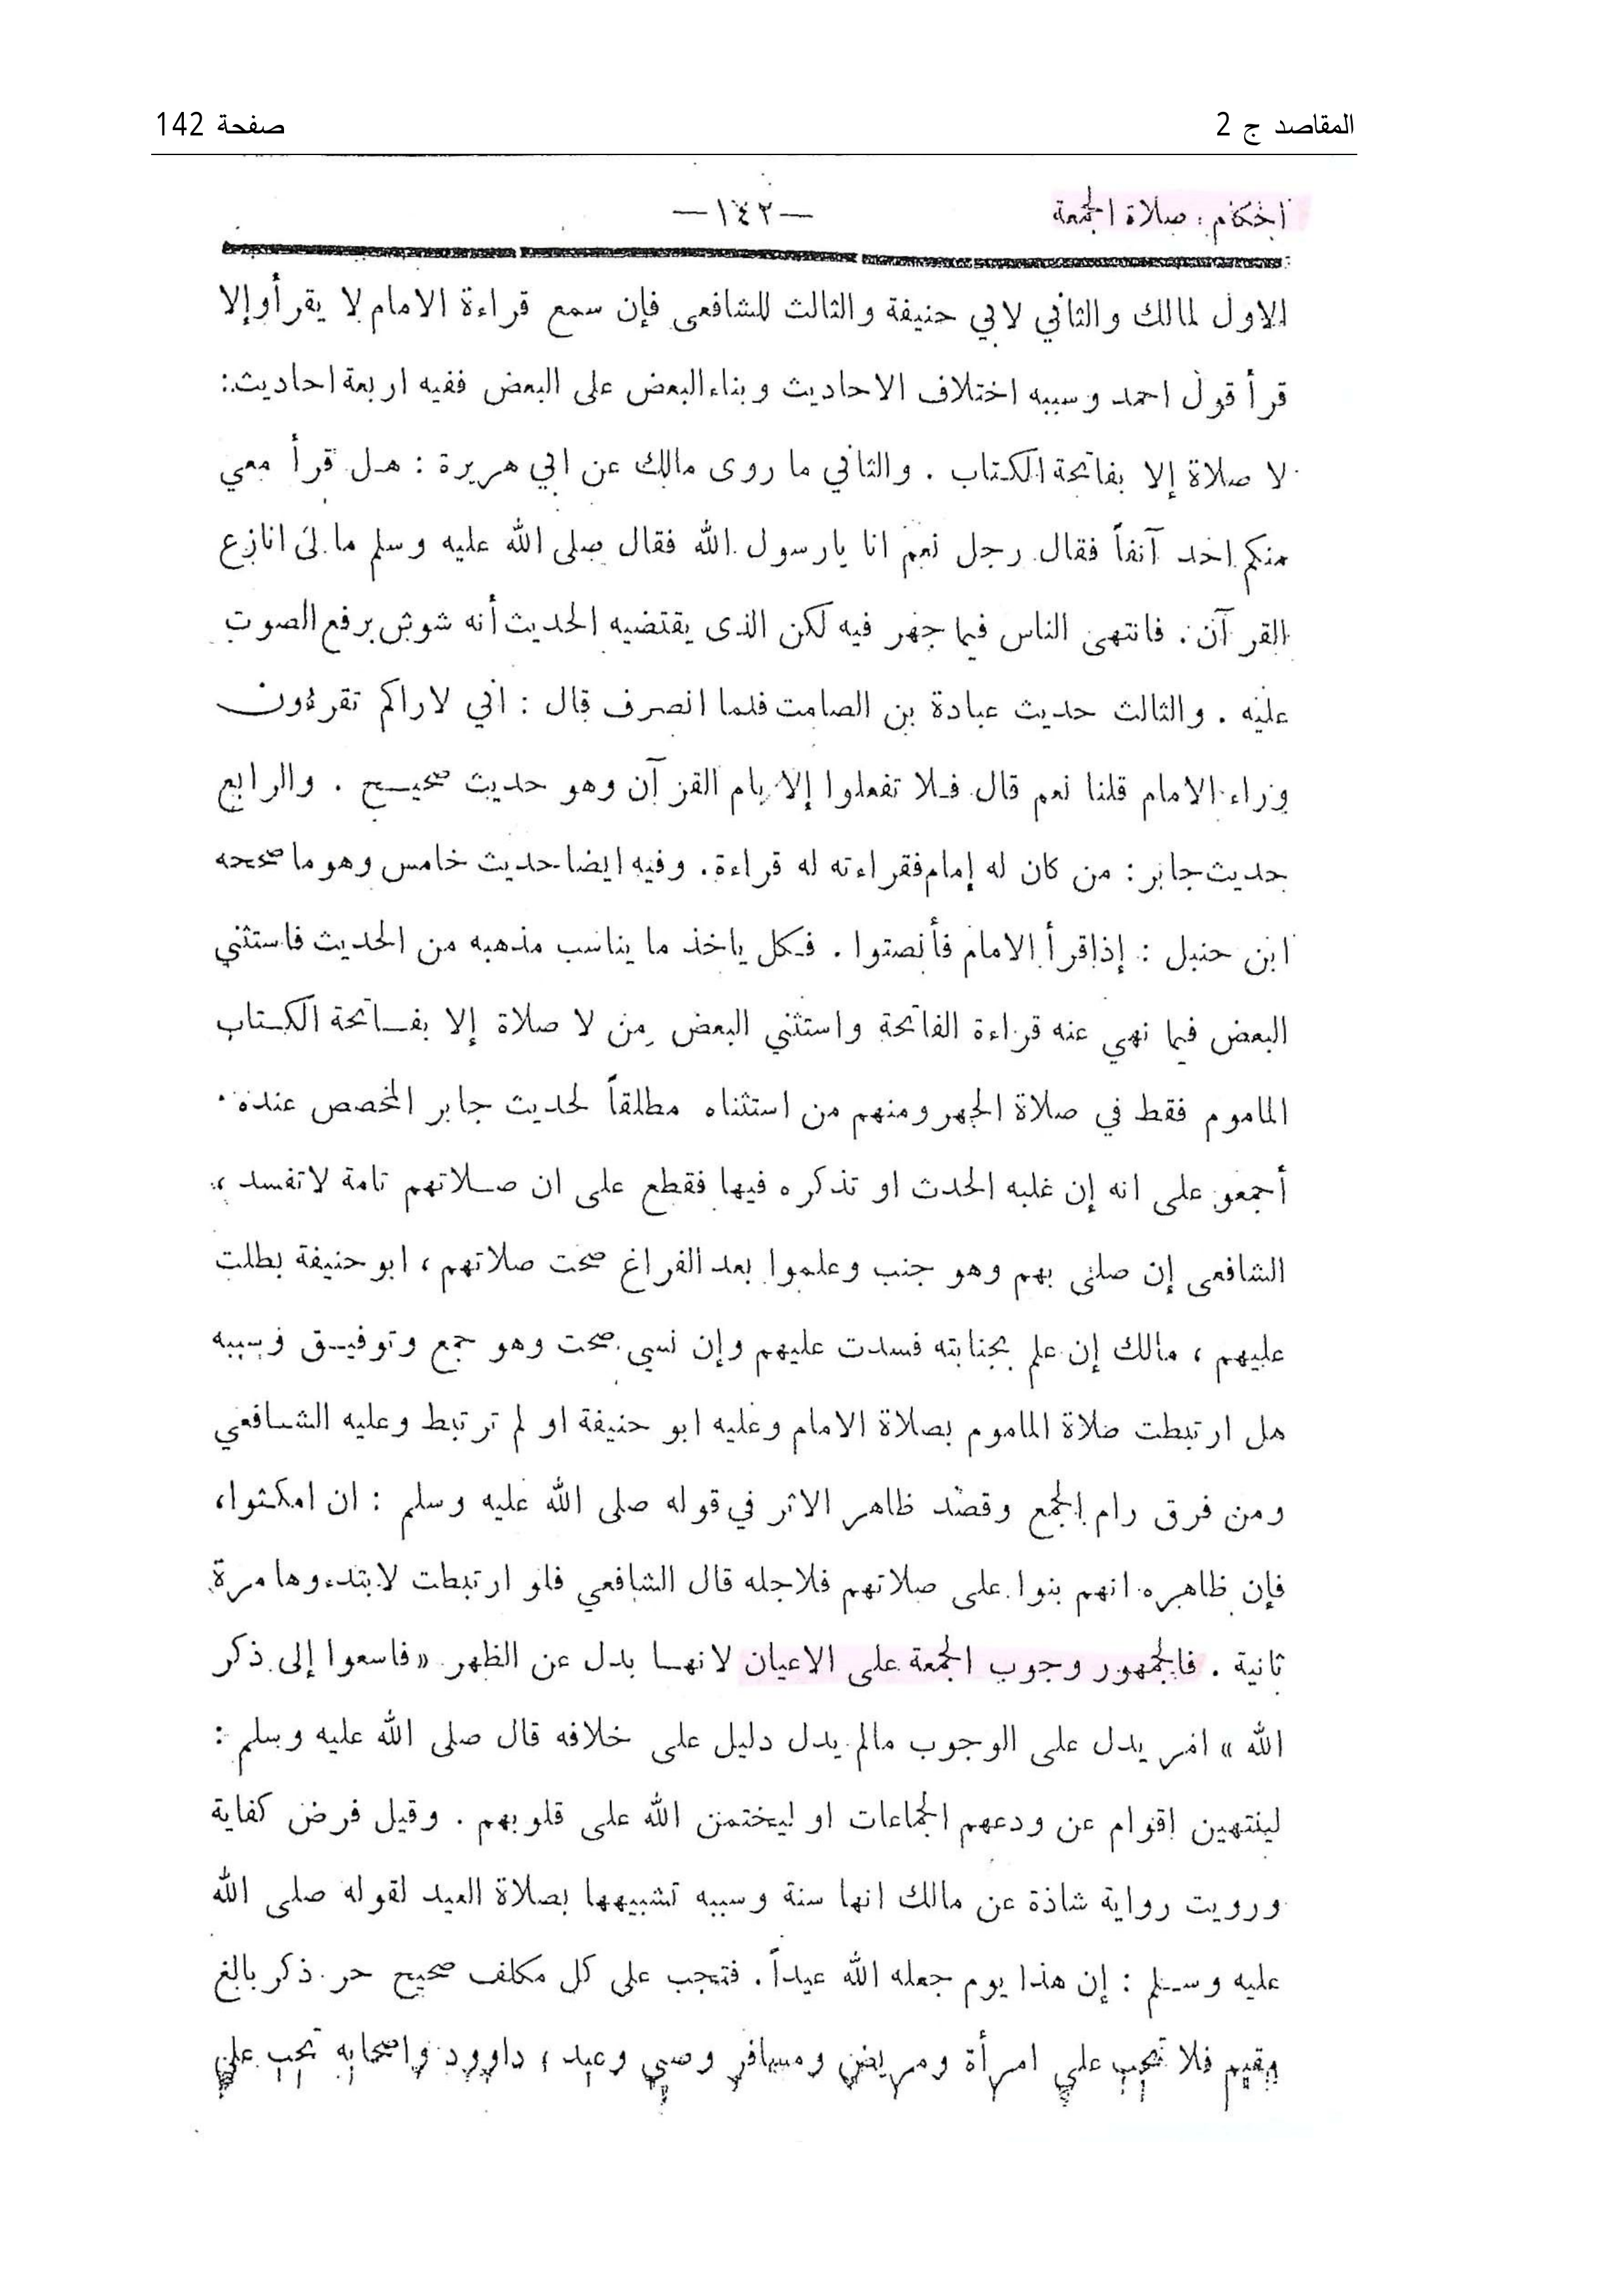 المقاصد ج 2
صفحة 142
أحكام : صلاة الجمعة
—١٤٢—
الاول لمالك والثاني لابي حنيفة والثالث للشافعى فإن سمع قراءة الامام لا يقرأ وإلا
قرأ قول احمد وسببه اختلاف الاحاديث وبناء البعض على البعض ففيه اربعة احاديث :
لا صلاة إلا بفاتحة الكتاب . والثاني ما روى مالك عن ابي هريرة : هل قرأ معي
منكم احد آنفاً فقال رجل نعم انا يارسول الله فقال صلى الله عليه وسلم ما لى انازع
القرآن . فانتهى الناس فيما جهر فيه لكن الذى يقتضيه الحديث أنه شوش برفع الصوت
عليه . والثالث حديث عبادة بن الصامت فلما انصرف قال : اني لاراكم تقرءون
وراء الامام قلنا نعم قال فلا تفعلوا إلا بام القرآن وهو حديث صحيح . والرابع
حديث جابر : من كان له إمام فقراءته له قراءة . وفيه ايضا حديث خامس وهو ما صححه
ابن حنبل : إذا قرأ الامام فأنصتوا . فكل ياخذ ما يناسب مذهبه من الحديث فاستثني
البعض فيما نهي عنه قراءة الفاتحة واستثني البعض من لا صلاة إلا بفاتحة الكتاب
الماموم فقط في صلاة الجهر ومنهم من استثناه مطلقاً لحديث جابر المخصص عنده .
أجمعو على انه إن غلبه الحدث او تذكره فيها فقطع على ان صلاتهم تامة لا تفسد ،
الشافعى إن صلى بهم وهو جنب وعلموا بعد الفراغ صحت صلاتهم ، ابو حنيفة بطلت
عليهم ، مالك إن علم بجنابته فسدت عليهم وإن نسي صحت وهو جمع وتوفيق وسببه
هل ارتبطت صلاة الماموم بصلاة الامام وعليه ابو حنيفة او لم ترتبط وعليه الشافعي
ومن فرق رام الجمع وقصد ظاهر الاثر في قوله صلى الله عليه وسلم : ان امكثوا ،
فإن ظاهره انهم بنوا على صلاتهم فلاجله قال الشافعي فلو ارتبطت لابتدءوها مرة
ثانية . فالجمهور وجوب الجمعة على الاعيان لانها بدل عن الظهر « فاسعوا إلى ذكر
الله » امر يدل على الوجوب مالم يدل دليل على خلافه قال صلى الله عليه وسلم :
لينتهين اقوام عن ودعهم الجماعات او ليختمن الله على قلوبهم . وقيل فرض كفاية
ورويت رواية شاذة عن مالك انها سنة وسببه تشبيهها بصلاة العيد لقوله صلى الله
عليه وسلم : إن هذا يوم جعله الله عيداً . فتجب على كل مكلف صحيح حر ذكر بالغ
مقيم فلا تجب على امرأة ومريض ومسافر وصبي وعبد ، داوود واصحابه تجب على